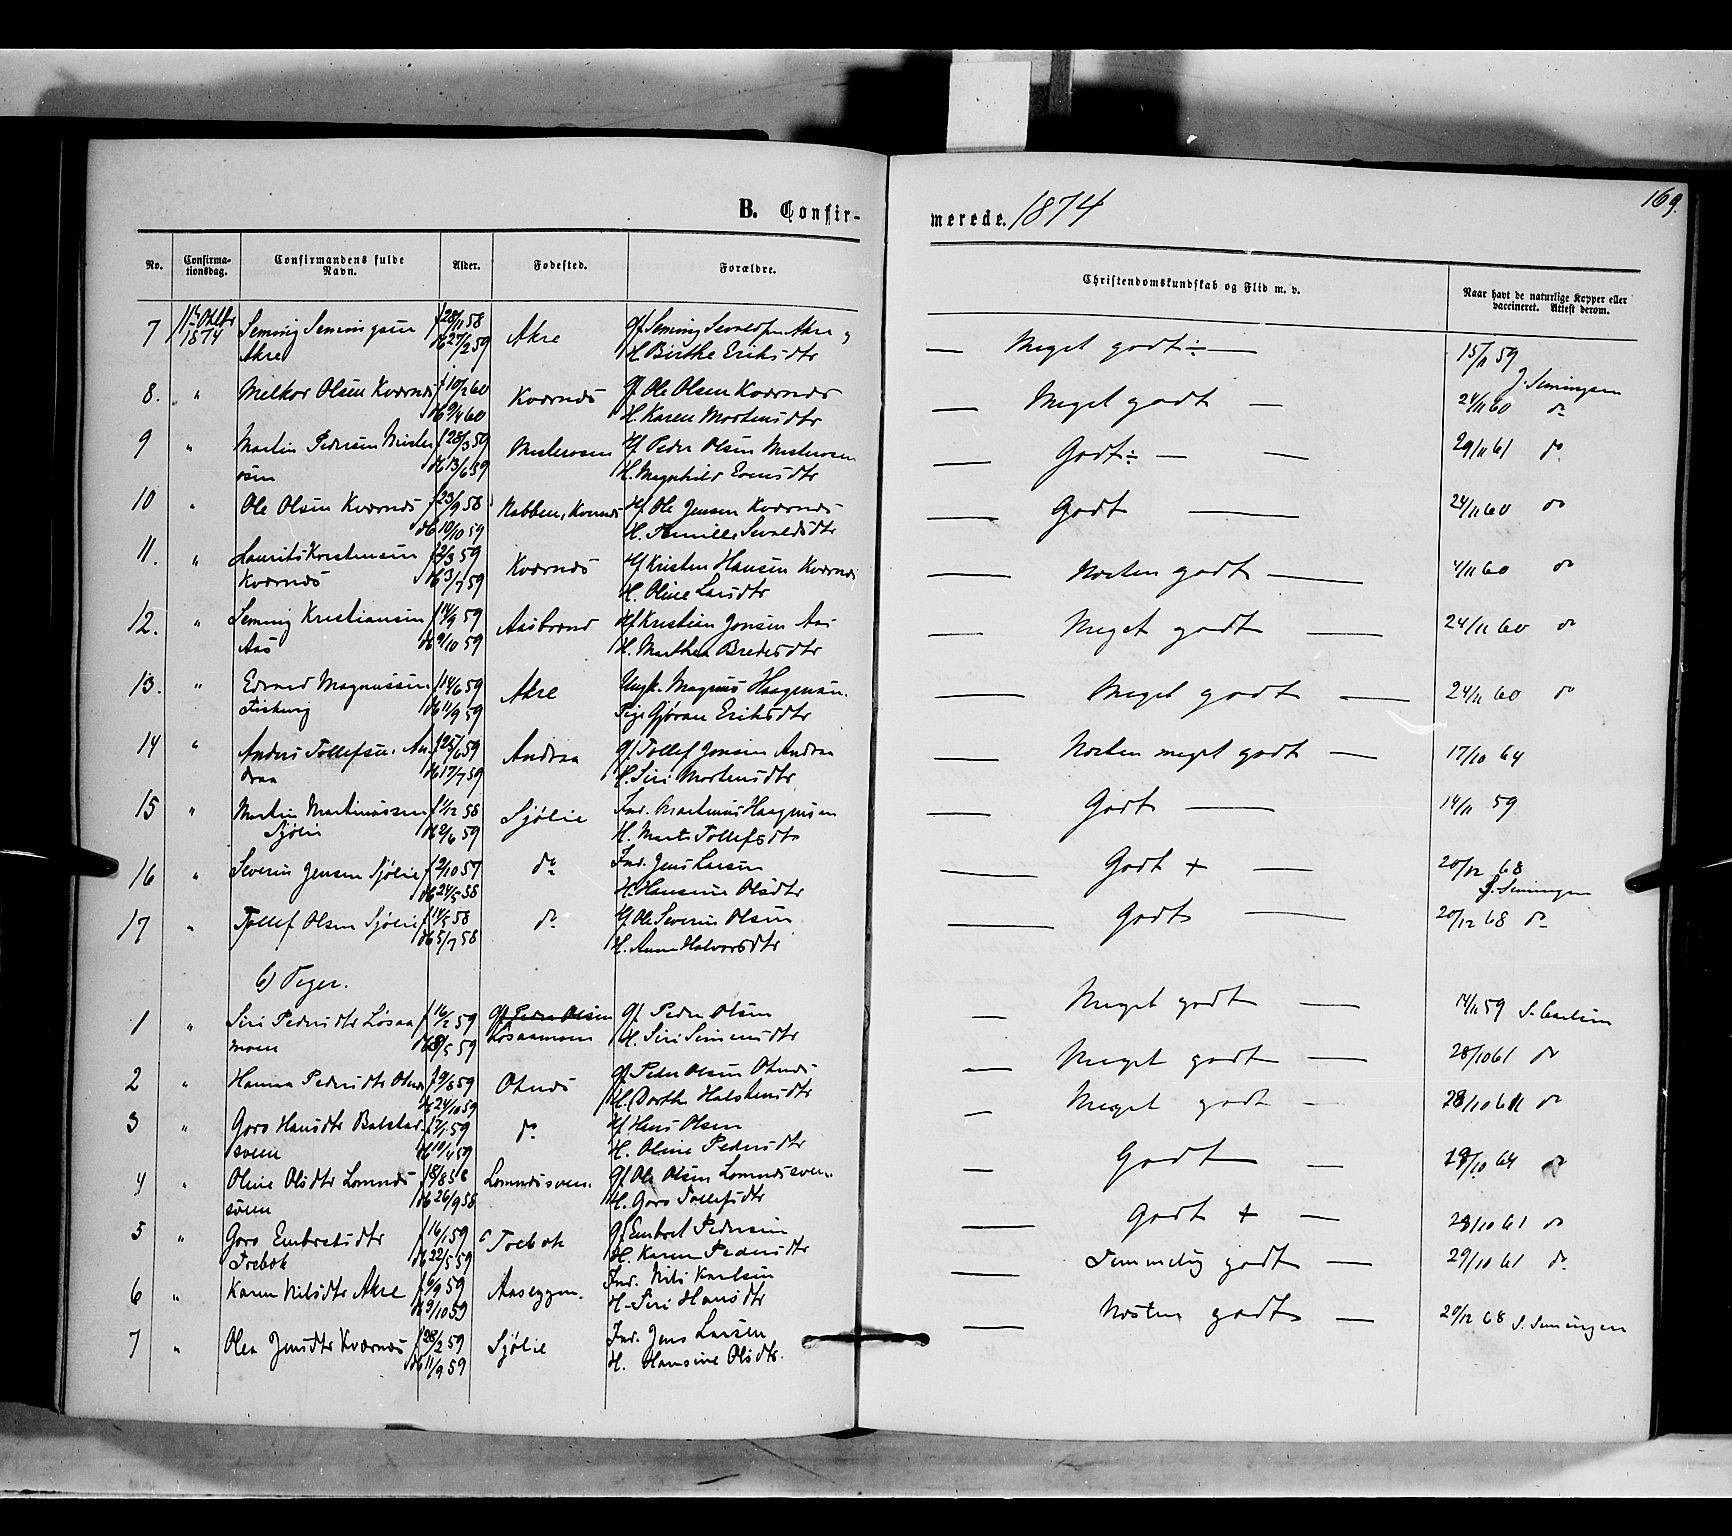 B. Confir-
merede. 1874
169.
No.
Confirma-
tionsdag.
Confirmandens fulde
Navn.
Alder.
Fødested.
Forældre.
Christendomskundskab og Flid m. v.
Naar havt de naturlige Kopper eller
vaccineret. Attest derom.
7 11te Oktbr 1874 Seming Semingsen Akre f 28/11 58 db 27/2 59 Akre Gf. Seming Sevaldsen Akre og H. Birthe Eriksdtr — Meget godt ÷ — 15/11 59 J. Semingsen
8. " Melkor Olsen Kværnæs f 10/2 60 db 9/4 60 Kværnæs Gf. Ole Olsen Kværnæs H. Karen Mortensdtr — Meget godt — 24/11 60 do
9 " Martin Pedersen Misterosen f 28/3 59 db 13/6 59 Misterosen Hf. Peder Olsen Misterosen H. Magnhild Evensdtr — Godt ÷ — — 29/11 61 do
10 " Ole Olsen Kværnæs f 23/9 58 db 10/10 59 Nabben, Kværnæs Hf. Ole Jensen Kværnæs H. Pernille Sevaldsdtr — Godt — 24/11 60 do
11. " Laurits Kristensen Kværnæs f 2/3 59 db 3/7 59 Kværnæs Hf. Kristen Hansen Kværnæs H. Oline Larsdtr — Næsten godt — 4/11 60 do
12. " Seming Kristiansen Aas f 14/9 59 db 9/10 59 Aasbrænd Hf. Kristian Jonsen Aas H. Marthea Bredesdtr — Meget godt — 24/11 60 do
13. " Edvard Magnussen Fiskvig f 14/6 59 db 11/9 59 Akre Ungk. Magnus Haagensen. Pige Gjøran Eriksdtr — Meget godt — 24/11 60 do
14 " Anders Tollefsen Andraa f 25/6 59 db 17/7 59 Andraa Gf. Tollef Jonsen Andraa H. Siri Mortensdtr — Næsten meget godt — 17/10 64
15 " Martin Martinussen Sjølie f 1/12 58 db 2/6 59 Sjølie Ind. Martinus Haagensen H. Marte Tollefsdtr — Godt — 14/11 59
16 " Severin Jensen Sjølie f 2/10 57 db 24/5 58 do Ind. Jens Larsen H. Hansine Olsdtr — Godt + — 20/12 68 S. Semingsen
17 " Tollef Olsen Sjølie f 14/5 58 db 5/7 58 do Gf. Ole Severin Olsen H. Anne Halvorsdtr — Godt — 20/12 68 do
b) Piger.
1 " Siri Pedersdtr Løsaamoen f 16/2 59 db 8/5 59 Gf. Peder Olsen Løsaamoen Gf. Peder Olsen H. Siri Simensdtr — Meget godt — 14/11 59 S. Carlsen
2 " Hanna Pedersdtr Otnes f 9/8 59 db 24/10 59 Otnæs Gf. Peder Olsen Otnæs H. Dorthe Halstensdtr — Meget godt — 28/10 61 do
3 " Goro Hansdtr Bolstad-sveen 59 db 10/4 59 do Hf. Hans Olsen H. Oline Pedersdtr — Meget godt — 28/10 61 do
4 " Oline Olsdtr Lomnæssveen f 18/8 58 db 26/9 58 Lomnæssveen. Gf. Ole Olsen Lomnæssveen H. Goro Tollefsdtr — Godt — 64 do
5 " Goro Embretsdtr Træbæk f 16/1 59 db 22/5 59 Træbæk Gf. Embret Pedersen H. Karen Pedersdtr — Godt + — 28/10 61 do
6 " Karen Nilsdtr Akre f 6/9 59 db 9/10 59 Aaseggen. Ind. Nils Karlsen H. Siri Hansdtr — Temmelig godt — 29/10 61 do
7 " Olea Jensdtr Kværnæs f 28/2 59 db 11/9 59 Sjølie Ind. Jens Larsen H. Hansine Olsdtr. — Næsten godt — 20/12 68 S. Semingsen